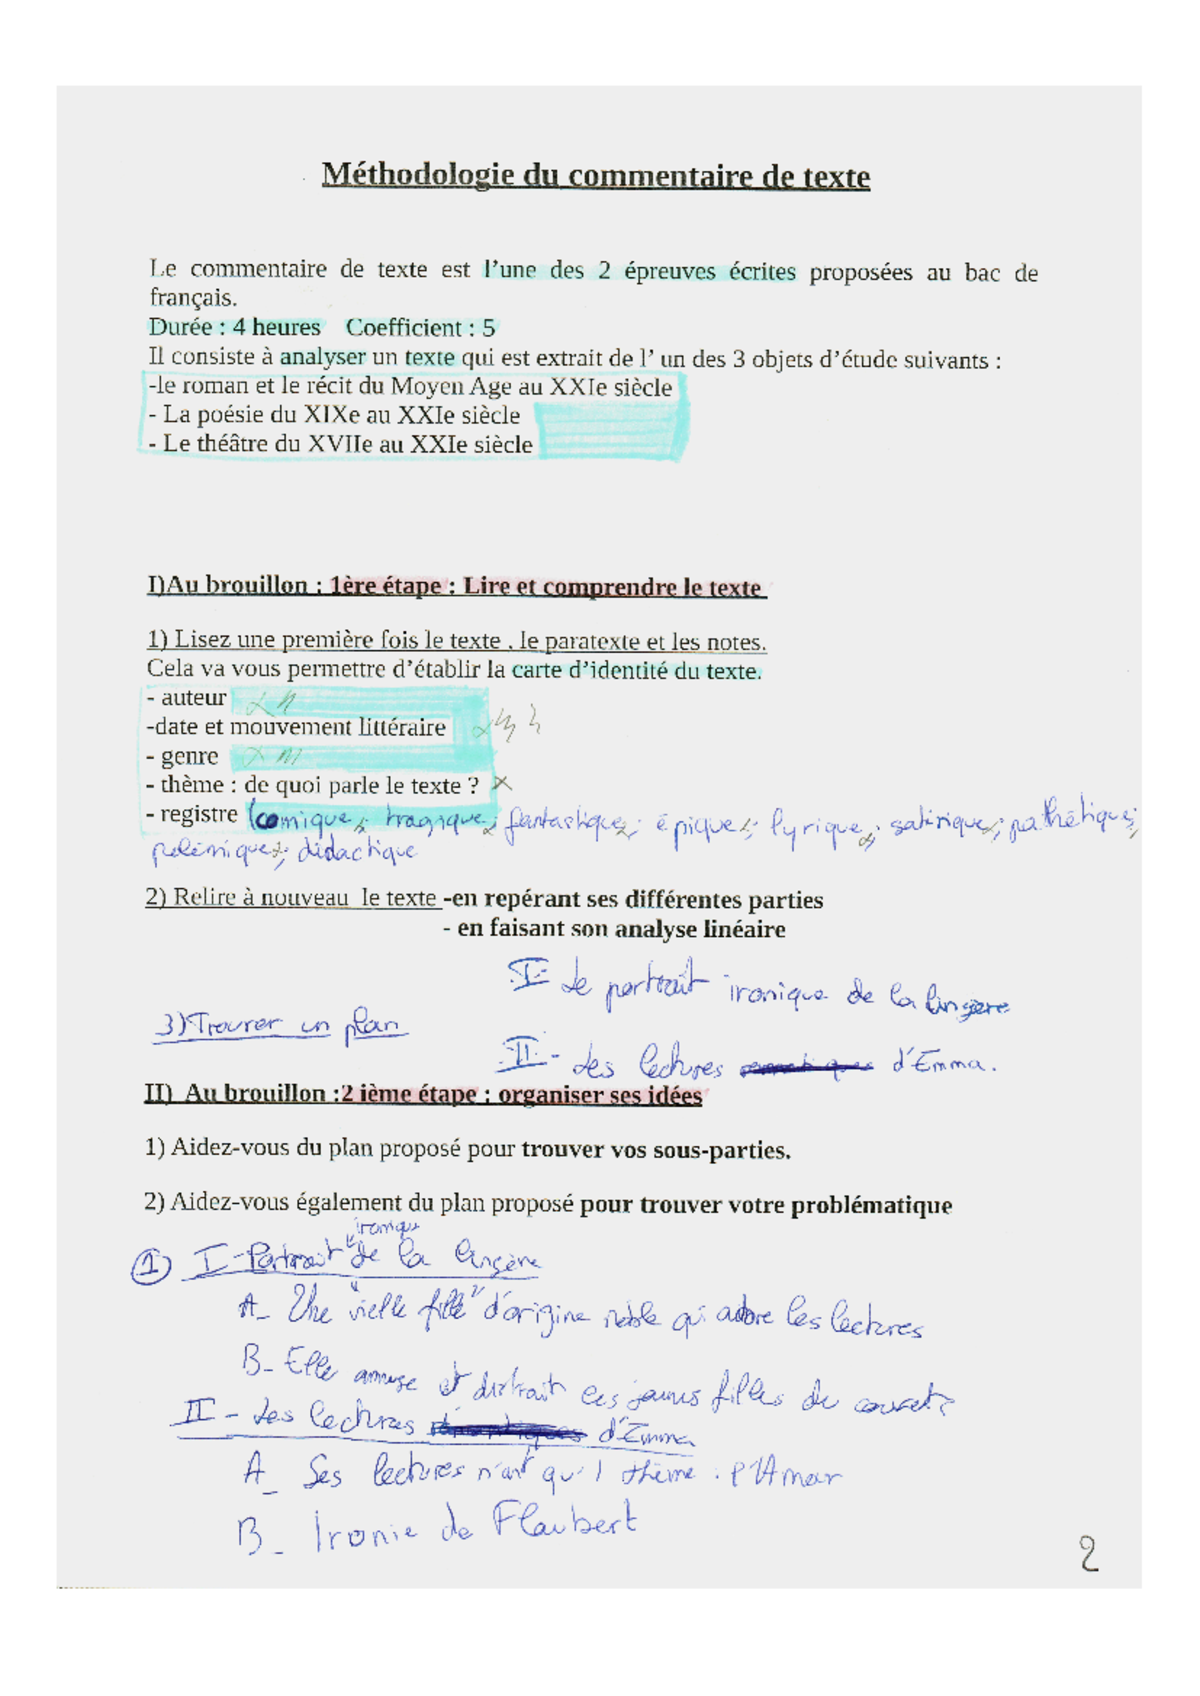 Méthodologie du commentaire de texte
Le commentaire de texte est l’une des 2 épreuves écrites proposées au bac de
français.
Durée : 4 heures Coefficient : 5
Il consiste à analyser un texte qui est extrait de l’ un des 3 objets d’étude suivants :
-le roman et le récit du Moyen Age au XXIe siècle
- La poésie du XIXe au XXIe siècle
- Le théâtre du XVIIe au XXIe siècle
I)Au brouillon : 1ère étape : Lire et comprendre le texte
1) Lisez une première fois le texte , le paratexte et les notes.
Cela va vous permettre d’établir la carte d’identité du texte.
- auteur
-date et mouvement littéraire
- genre
- thème : de quoi parle le texte ? x
- registre (comique, tragique, fantastique, épique, lyrique, satirique, pathétique,
polémique, didactique
2) Relire à nouveau le texte -en repérant ses différentes parties
- en faisant son analyse linéaire
I- Le portrait ironique de la lingère
3) Trouver un plan
II - Les lectures d'Emma.
II) Au brouillon :2 ième étape : organiser ses idées
1) Aidez-vous du plan proposé pour trouver vos sous-parties.
2) Aidez-vous également du plan proposé pour trouver votre problématique
ironique
1 I- Portrait de la lingère
A- Une "vielle fille" d'origine noble qui adore les lectures
B- Elle amuse et distrait ces jeunes filles du couvent
II - Les lectures d'Emma
A_ Ses lectures n'ont qu'1 thème : l'Amour
B_ Ironie de Flaubert
2